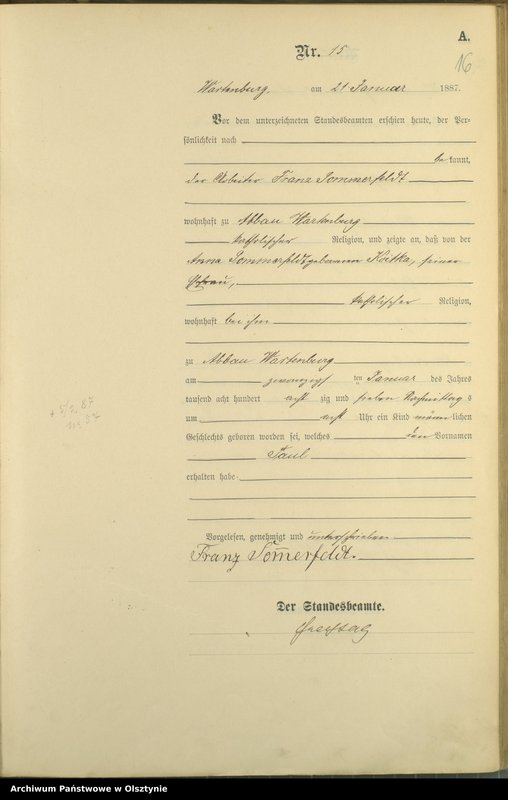 A.
Nr. 15
16
Wartenburg, am 21 Januar 1887.
Vor dem unterzeichneten Standesbeamten erschien heute, der Per-
sönlichkeit nach
be kannt,
der Arbeiter Franz Sommerfeldt
wohnhaft zu Abbau Wartenburg
katholischer Religion, und zeigte an, daß von der
Anna Sommerfeldt geborenen Koitka, seiner
Ehefrau,
katholischer Religion,
wohnhaft bei ihm
zu Abbau Wartenburg
am zwanzigsten Januar des Jahres
tausend acht hundert acht zig und sieben Nachmittags
um acht Uhr ein Kind männlichen
Geschlechts geboren worden sei, welches den Vornamen
Paul
erhalten habe.
+ 5/2. 87
Vorgelesen, genehmigt und unterschrieben
Franz Som̄erfeldt.
Der Standesbeamte.
Freitag
Archiwum Państwowe w Olsztynie